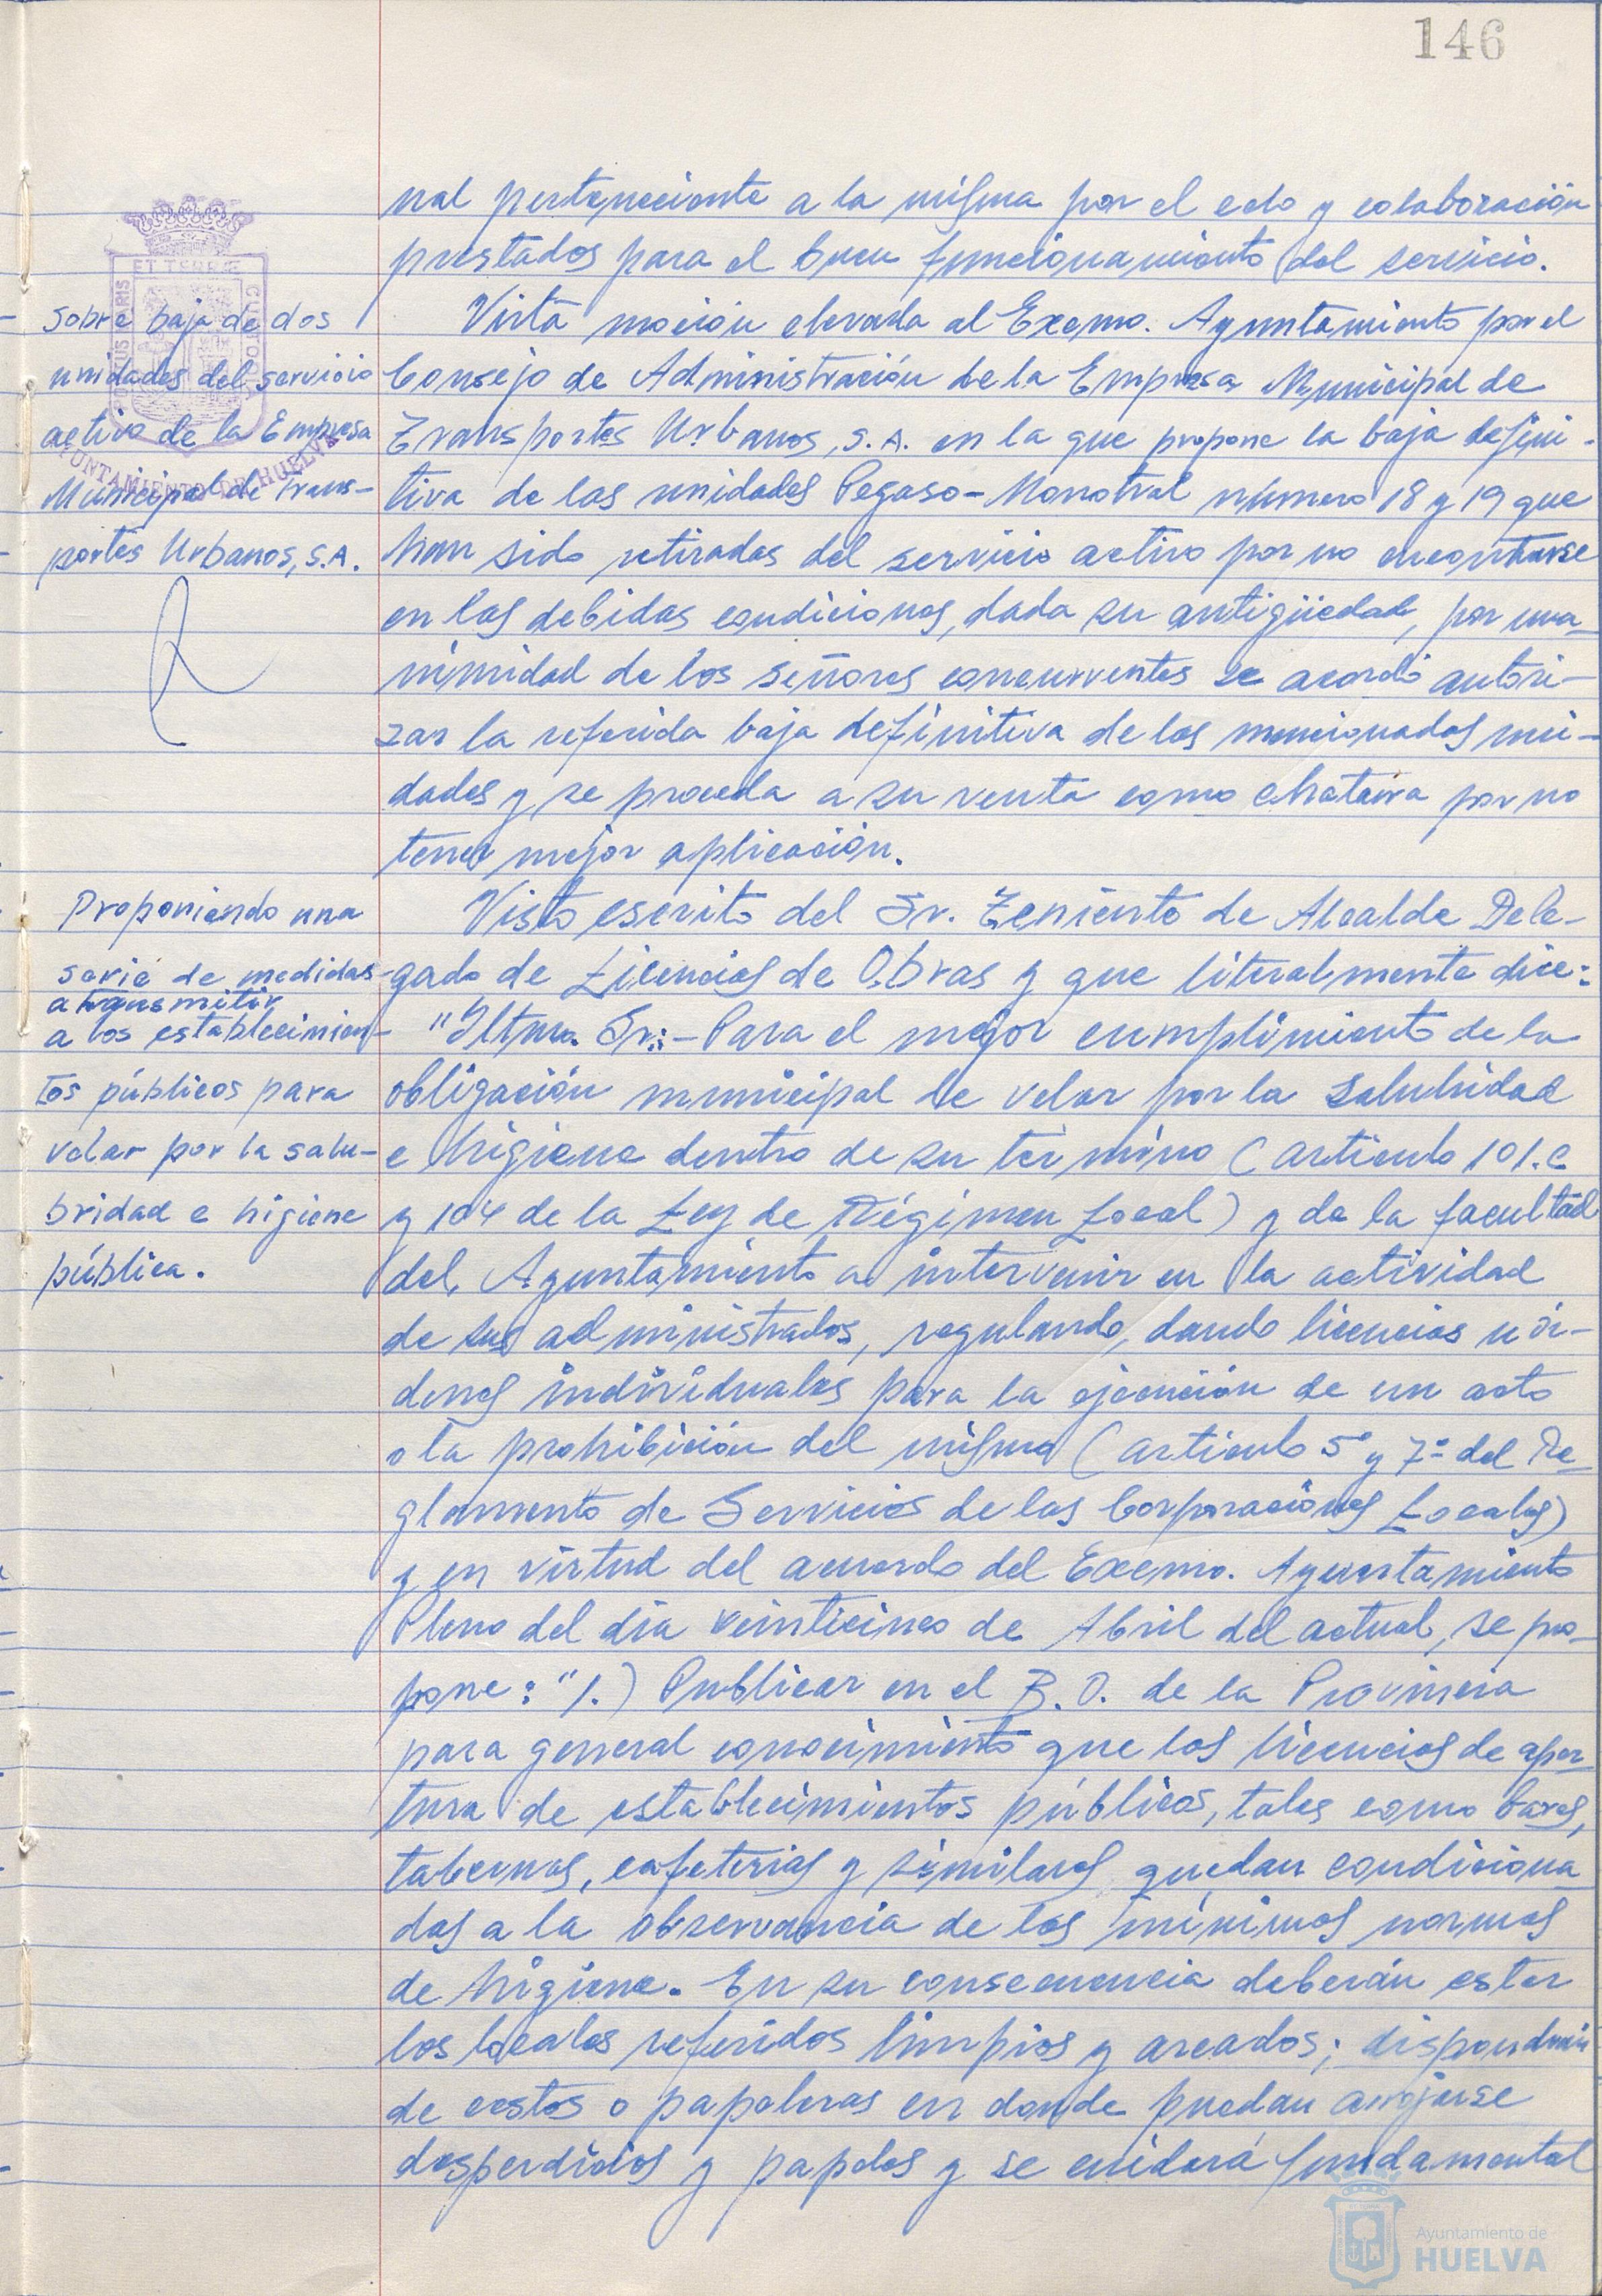 146
nal perteneciente a la misma por el celo y colaboración
prestados para el buen funcionamiento del servicio.
Sobre baja de dos
unidades del servicio
activo de la Empresa
Municipal de Trans-
portes Urbanos, S.A.
Vista moción elevada al Excmo. Ayuntamiento por el
Consejo de Administración de la Empresa Municipal de
Transportes Urbanos, S.A. en la que propone la baja defini-
tiva de las unidades Pegaso-Monotral número 18 y 19 que
han sido retiradas del servicio activo por no encontrarse
en las debidas condiciones, dada su antigüedad, por una-
nimidad de los señores concurrentes se acordó autori-
zar la referida baja definitiva de las mencionadas uni-
dades y se proceda a su venta como chatarra por no
tener mejor aplicación.
Proponiendo una
serie de medidas
a transmitir
a los establecimien-
tos públicos para
velar por la salu-
bridad e higiene
pública.
Visto escrito del Sr. Teniente de Alcalde Dele-
gado de Licencias de Obras y que literalmente dice:
"Iltmo. Sr.:- Para el mejor cumplimiento de la
obligación municipal de velar por la salubridad
e higiene dentro de su término (artículo 101.c
y 104 de la Ley de Régimen Local) y de la facultad
del Ayuntamiento a intervenir en la actividad
de sus administrados, regulando, dando licencias u ór-
denes individuales para la ejecución de un acto
o la prohibición del mismo (artículo 5º y 7º del Re-
glamento de Servicios de las Corporaciones Locales)
y en virtud del acuerdo del Excmo. Ayuntamiento
Pleno del día veinticinco de Abril del actual, se pro-
pone: "1.) Publicar en el B.O. de la Provincia
para general conocimiento que las licencias de aper-
tura de establecimientos públicos, tales como bares,
tabernas, cafeterias y similares quedan condiciona-
das a la observancia de las mínimas normas
de higiene. En su consecuencia deberán estar
los locales referidos limpios y areados; dispondrán
de cestos o papeleras en donde puedan arrojarse
desperdicios y papeles y se cuidará fundamental
PORTUS MARIS ET TERRE CUSTODIA
AYUNTAMIENTO DE HUELVA
Ayuntamiento de
HUELVA